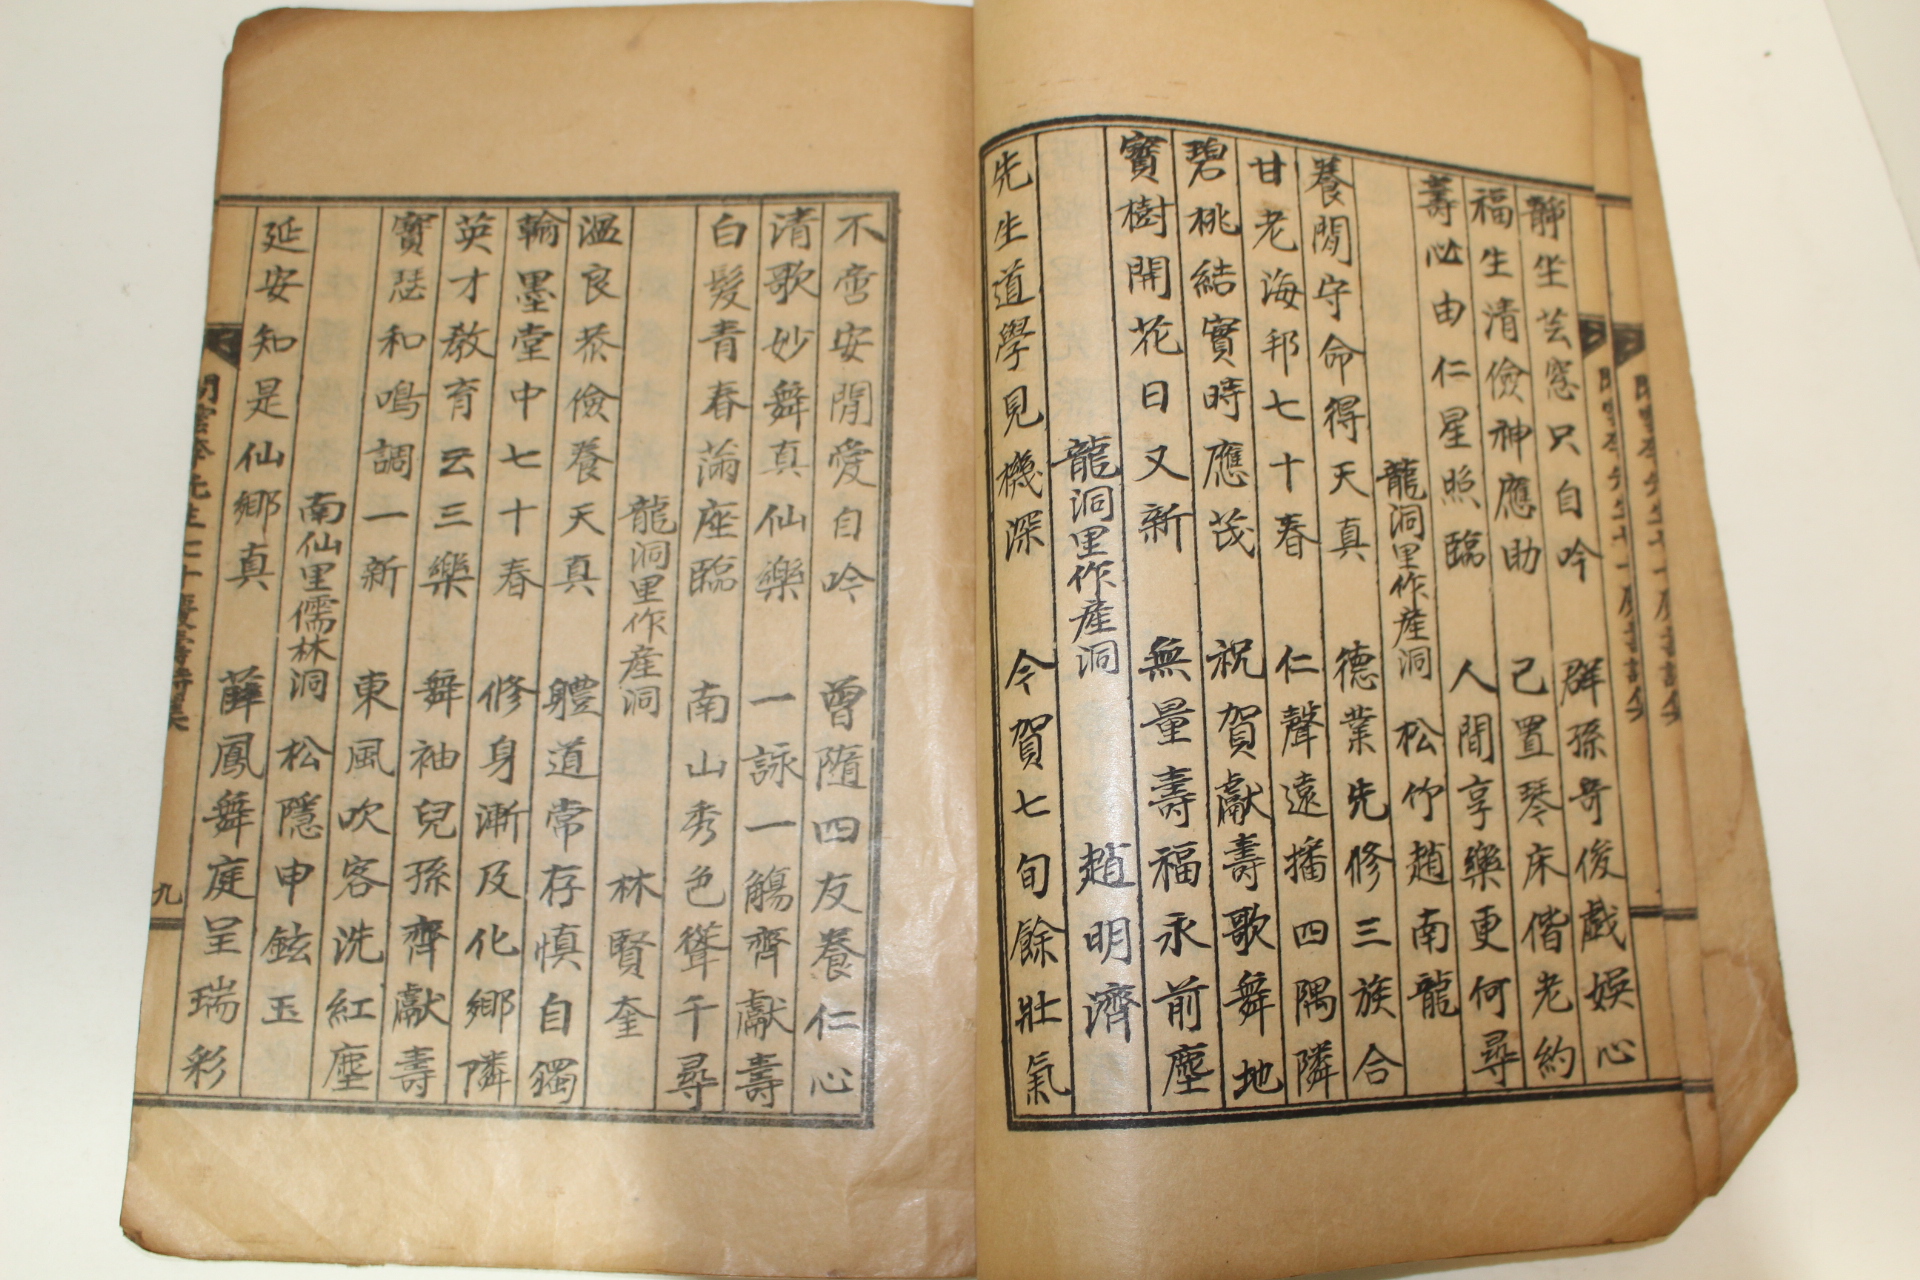 靜坐芸窓只自吟 群孫奇俊戱娛心
福生清儉神應助 己置琴床偕老約
壽必由仁星照臨 人間享樂更何尋
龍洞里作産洞 松竹趙南龍
養閒守命得天真 德業先修三族合
甘老海邦七十春 仁聲遠播四隅隣
碧桃結實時應茂 祝賀獻壽歌舞地
寶樹開花日又新 無量壽福永前塵
龍洞里作産洞 趙明濟
先生道學見機深 今賀七旬餘壯氣
不啻安閒愛自吟 曾隨四友養仁心
清歌妙舞真仙樂 一詠一觴齊獻壽
白髮青春滿座臨 南山秀色聳千尋
龍洞里作産洞 林賢奎
溫良恭儉養天真 體道常存慎自獨
翰墨堂中七十春 修身漸及化鄉隣
英才教育云三樂 舞袖兒孫齊獻壽
寶瑟和鳴調一新 東風吹客洗紅塵
南仙里儒林洞 松隱申鉉玉
延安知是仙鄉真 薛鳳舞庭呈瑞彩
九